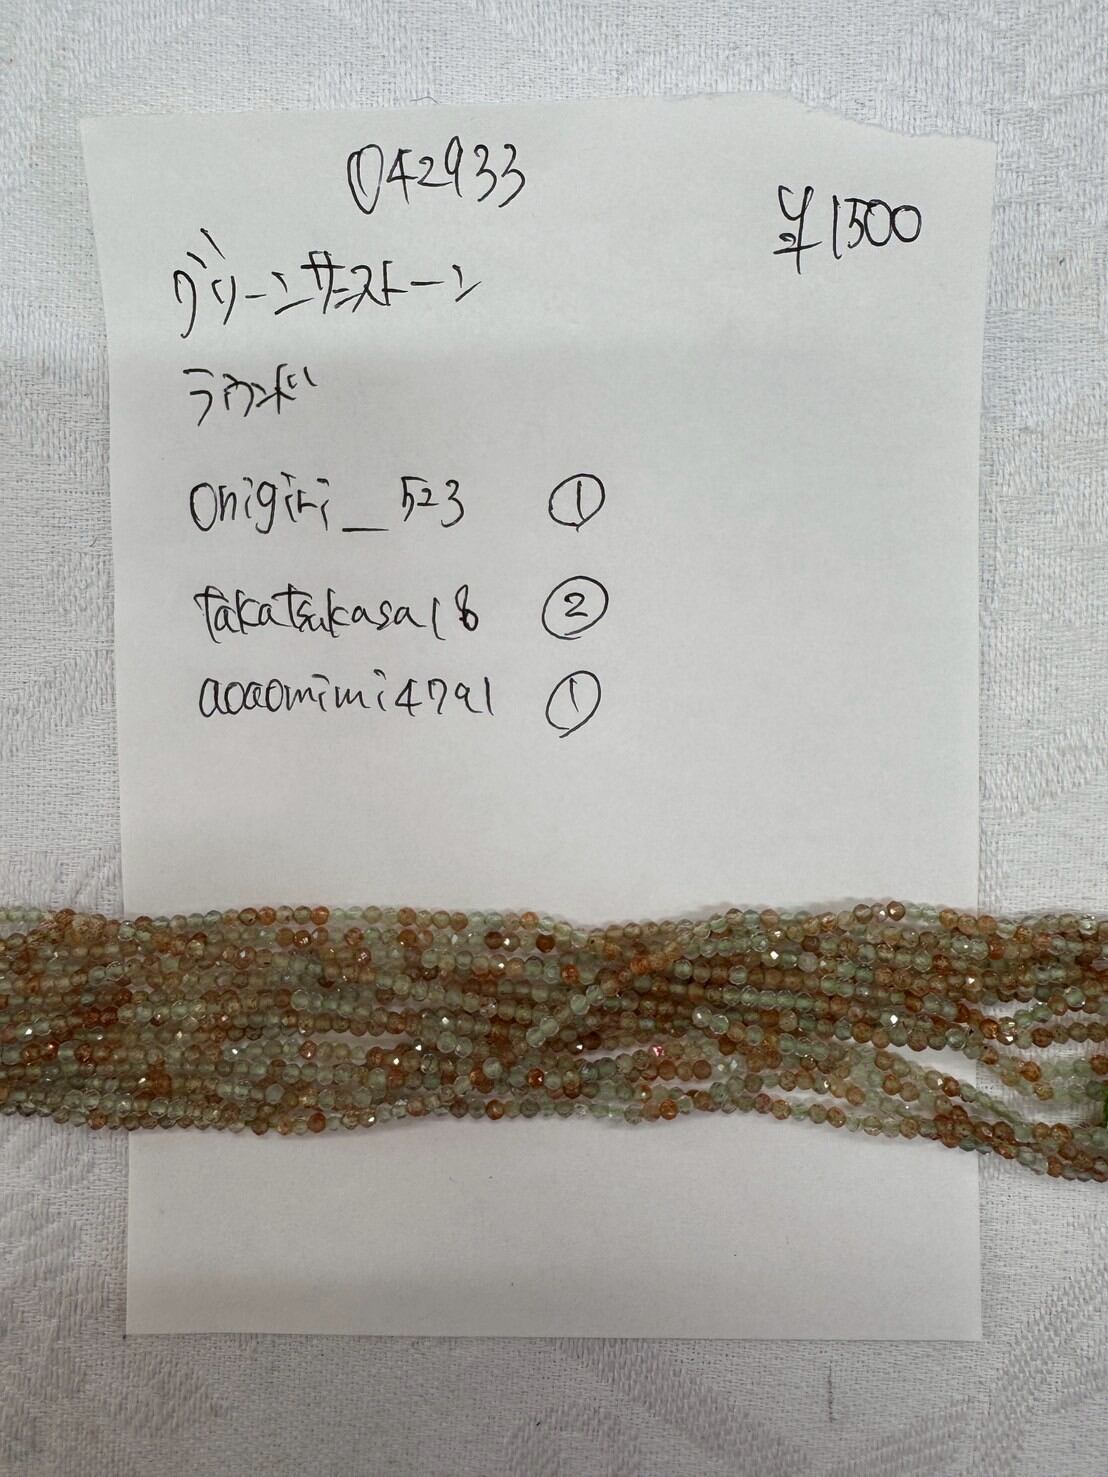 042933
¥1500
グリーンサンストーン
ラウンド
onigiri_523 ①
takatsukasa18 ②
aoaomimi4791 ①